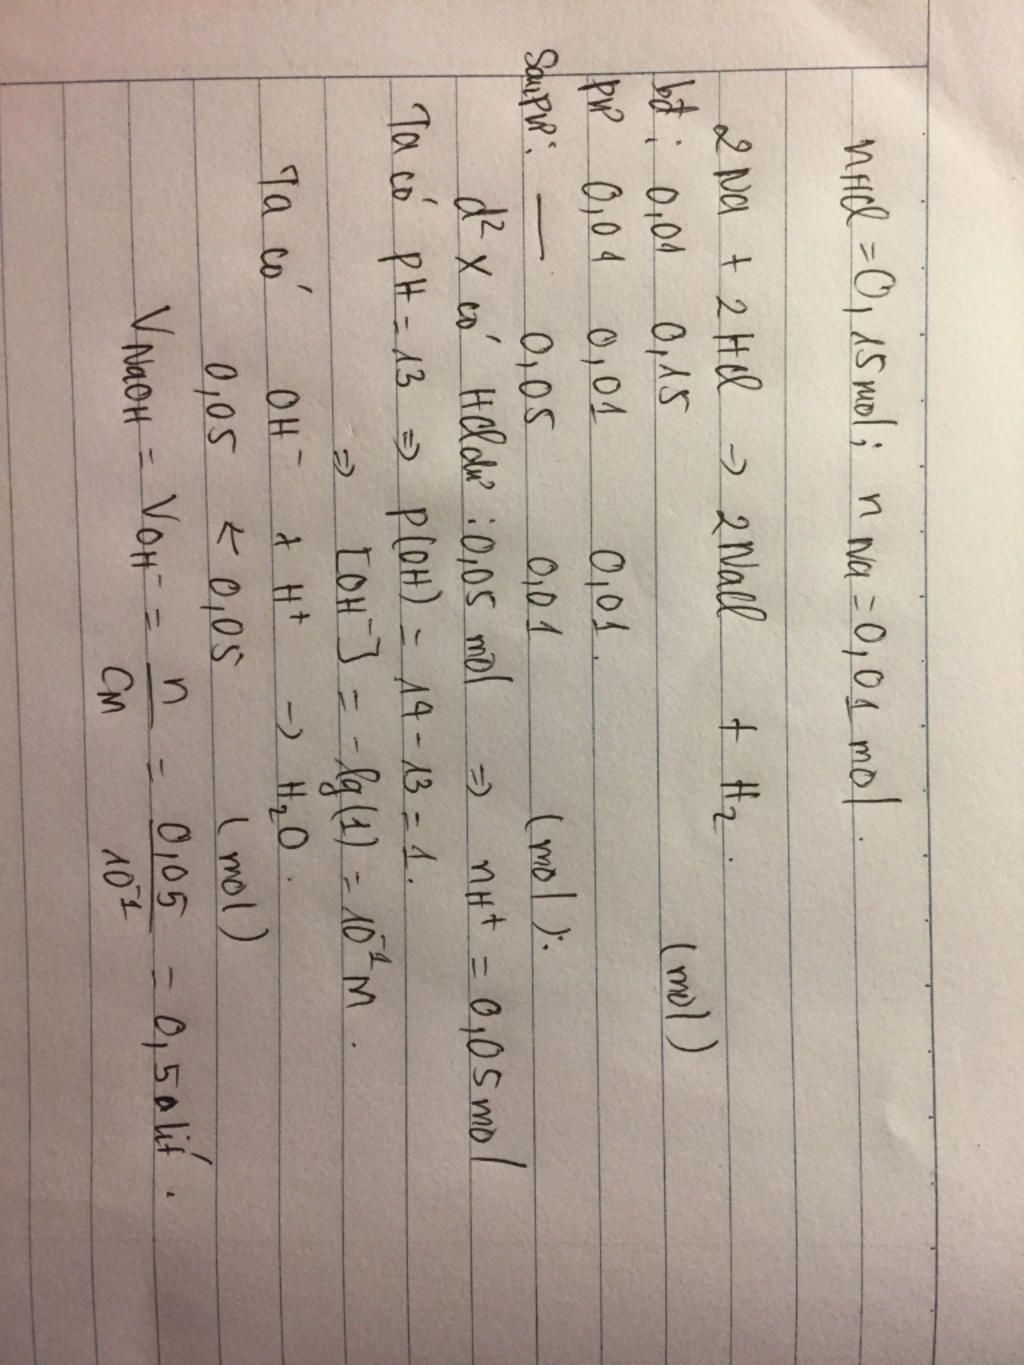 nHCl = 0,15 mol; n Na = 0,01 mol.
2 Na + 2 HCl → 2NaCl + H₂.
bđ: 0,01 0,15 (mol)
pư 0,01 0,01 0,01.
Sau pư: — 0,05 0,01 (mol):
d² X có HCl dư: 0,05 mol ⇒ nH⁺ = 0,05 mol
Ta có pH = 13 ⇒ p(OH) = 14 - 13 = 1.
⇒ [OH⁻] = -lg(1) = 10⁻¹ M.
Ta có OH⁻ + H⁺ → H₂O.
0,05 ← 0,05 (mol)
VNaOH = VOH⁻ = n/CM = 0,05/10⁻¹ = 0,5 lít.